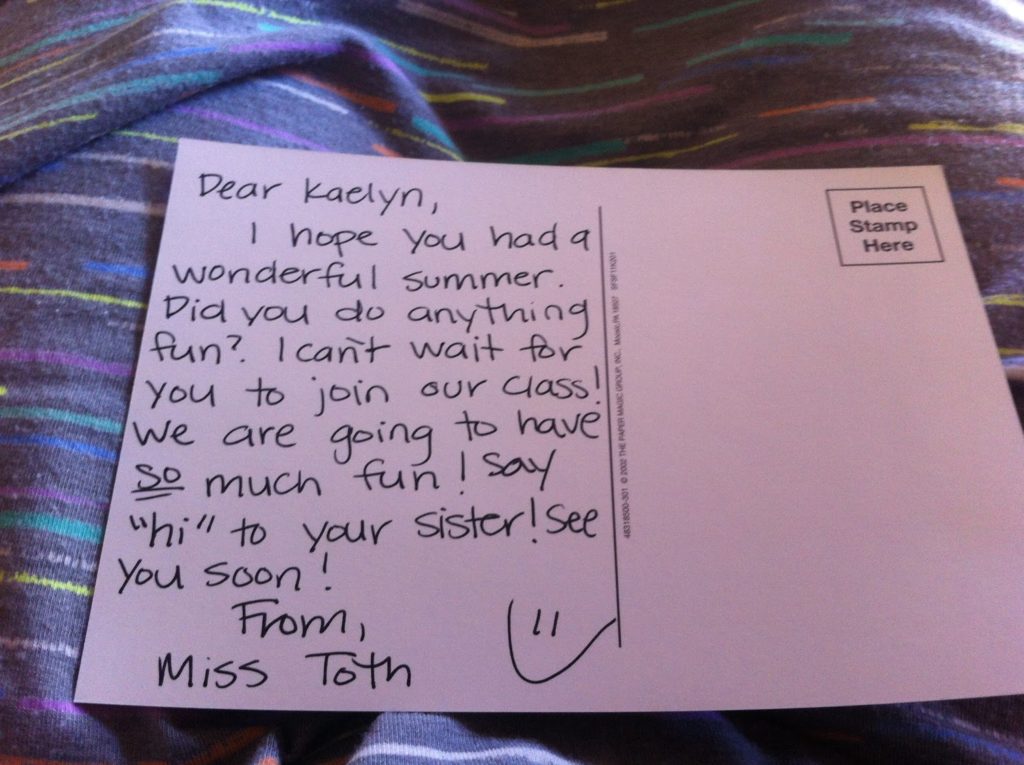 Dear Kaelyn,
I hope you had a
wonderful summer.
Did you do anything
fun? I can't wait for
you to join our class!
We are going to have
so much fun! Say
"hi" to your sister! See
you soon!
From,
Miss Toth
48318S00-S01 © 2002 THE PAPER MAGIC GROUP, INC.
Place
Stamp
Here